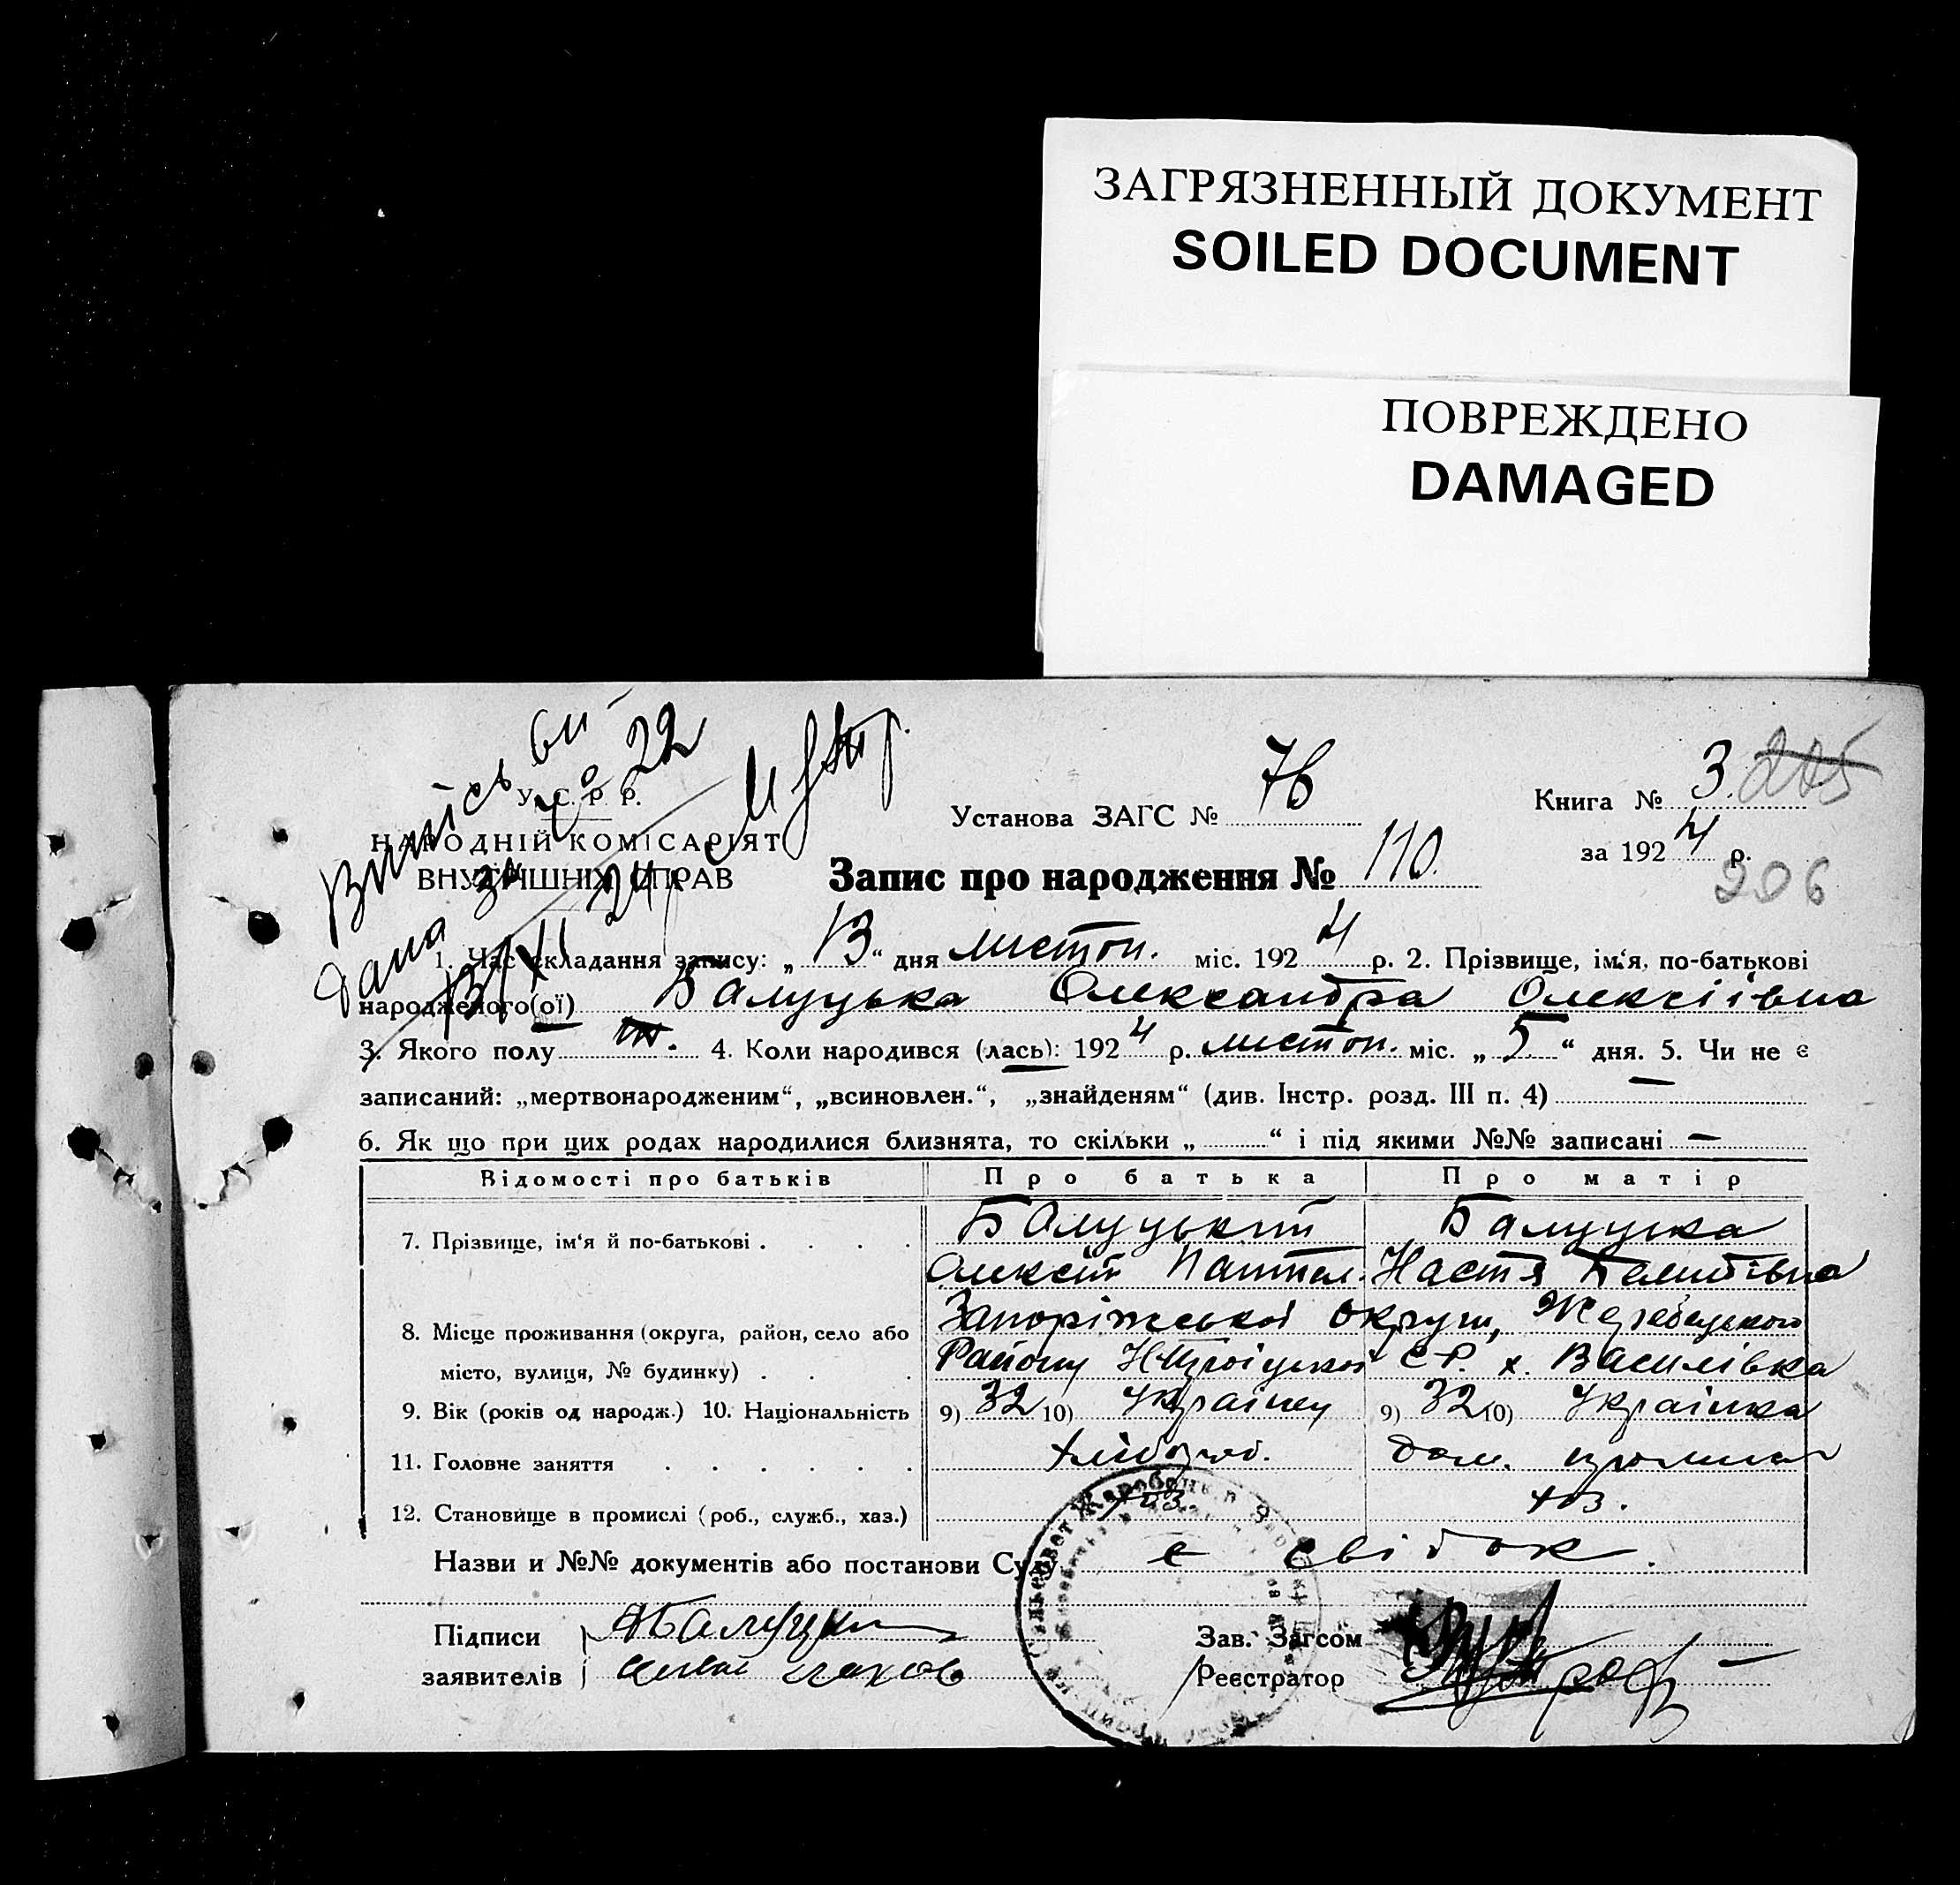 ЗАГРЯЗНЕННЫЙ ДОКУМЕНТ
SOILED DOCUMENT
ПОВРЕЖДЕНО
DAMAGED
Випись
№ 22
дана за
У. С. Р. Р.
НАРОДНІЙ КОМІСАРІЯТ
ВНУТРІШНІХ СПРАВ
Установа ЗАГС № 76
Книга № 3. 205
за 1924 р.
206
Запис про народження № 110.
1. Час складання запису: „ 13 “ дня листоп. міс. 1924 р. 2. Прізвище, ім‘я, по-батькові
народженого(ої) Балуцька Олександра Олексіївна
3. Якого полу ж. 4. Коли народився (лась): 1924 р. листоп. міс. „ 5 “ дня. 5. Чи не є
записаний: „мертвонародженим“, „всиновлен.“, „знайденям“ (див. Інстр. розд. III п. 4) —
6. Як що при цих родах народилися близнята, то скільки „ “ і під якими №№ записані —
Відомості про батьків Про батька Про матір
7. Прізвище, ім‘я й по-батькові . . . . Балуцький Балуцка
Олексій Настя
8. Місце проживання (округа, район, село або Запоріжської округи, Жеребецького
місто, вулиця, № будинку) . . . Району СР. х. Василівка
9. Вік (років од народж.) 10. Національність 9) 32 10) Українец 9) 32 10) Українка
11. Головне заняття . . . . . . хлібороб. дом.
12. Становище в промислі (роб., служб., хаз.) хоз. хоз.
Назви и №№ документів або постанови Суду є свідок.
Підписи
заявителів
Балуцки
Зав. Загсом
Реєстратор